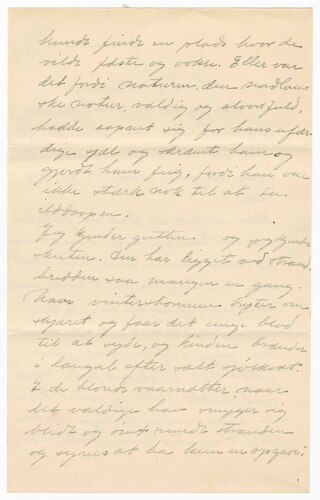 kunde finde en plads hvor de
vilde fæste og vokse. Eller var
det fordi naturen, den nordland-
ske natur, vældig og alvorsfuld,
hadde aapnet sig for hans ufær-
dige sjæl og skræmt ham og
gjordt ham feig, fordi han var
ikke stærk nok til at ta
ilddaapen.
Jeg kjender gutten og jeg kjender
skuten. Den har ligget ved strand-
bredden saa mangen en gang.
Naar vinterstormene bryter over
skjæret og faar det unge blod
til at syde, og kinden brænder
i længsel efter salt sjøskvæt.
I de blonde vaarnætter, naar
det vældige hav smyger sig
blidt og ømt rundt stranden
og synes at ha kun en opgave: